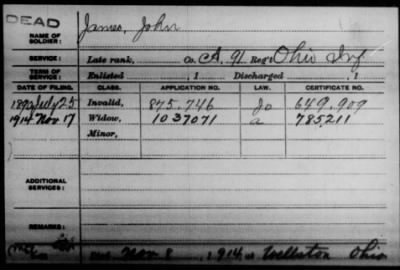 DEAD
NAME OF SOLDIER: James, John
SERVICE: Late rank, Co. A, 91 Reg't Ohio Inf
TERM OF SERVICE: Enlisted , 1 Discharged , 1
DATE OF FILING. CLASS. APPLICATION NO. LAW. CERTIFICATE NO.
1892 July 25 Invalid, 875.746 649.909
1914 Nov. 17 Widow, 1037071 a 785211
Minor,
ADDITIONAL SERVICES:
REMARKS:
Nov. 8, 1914 at Wellston Ohio